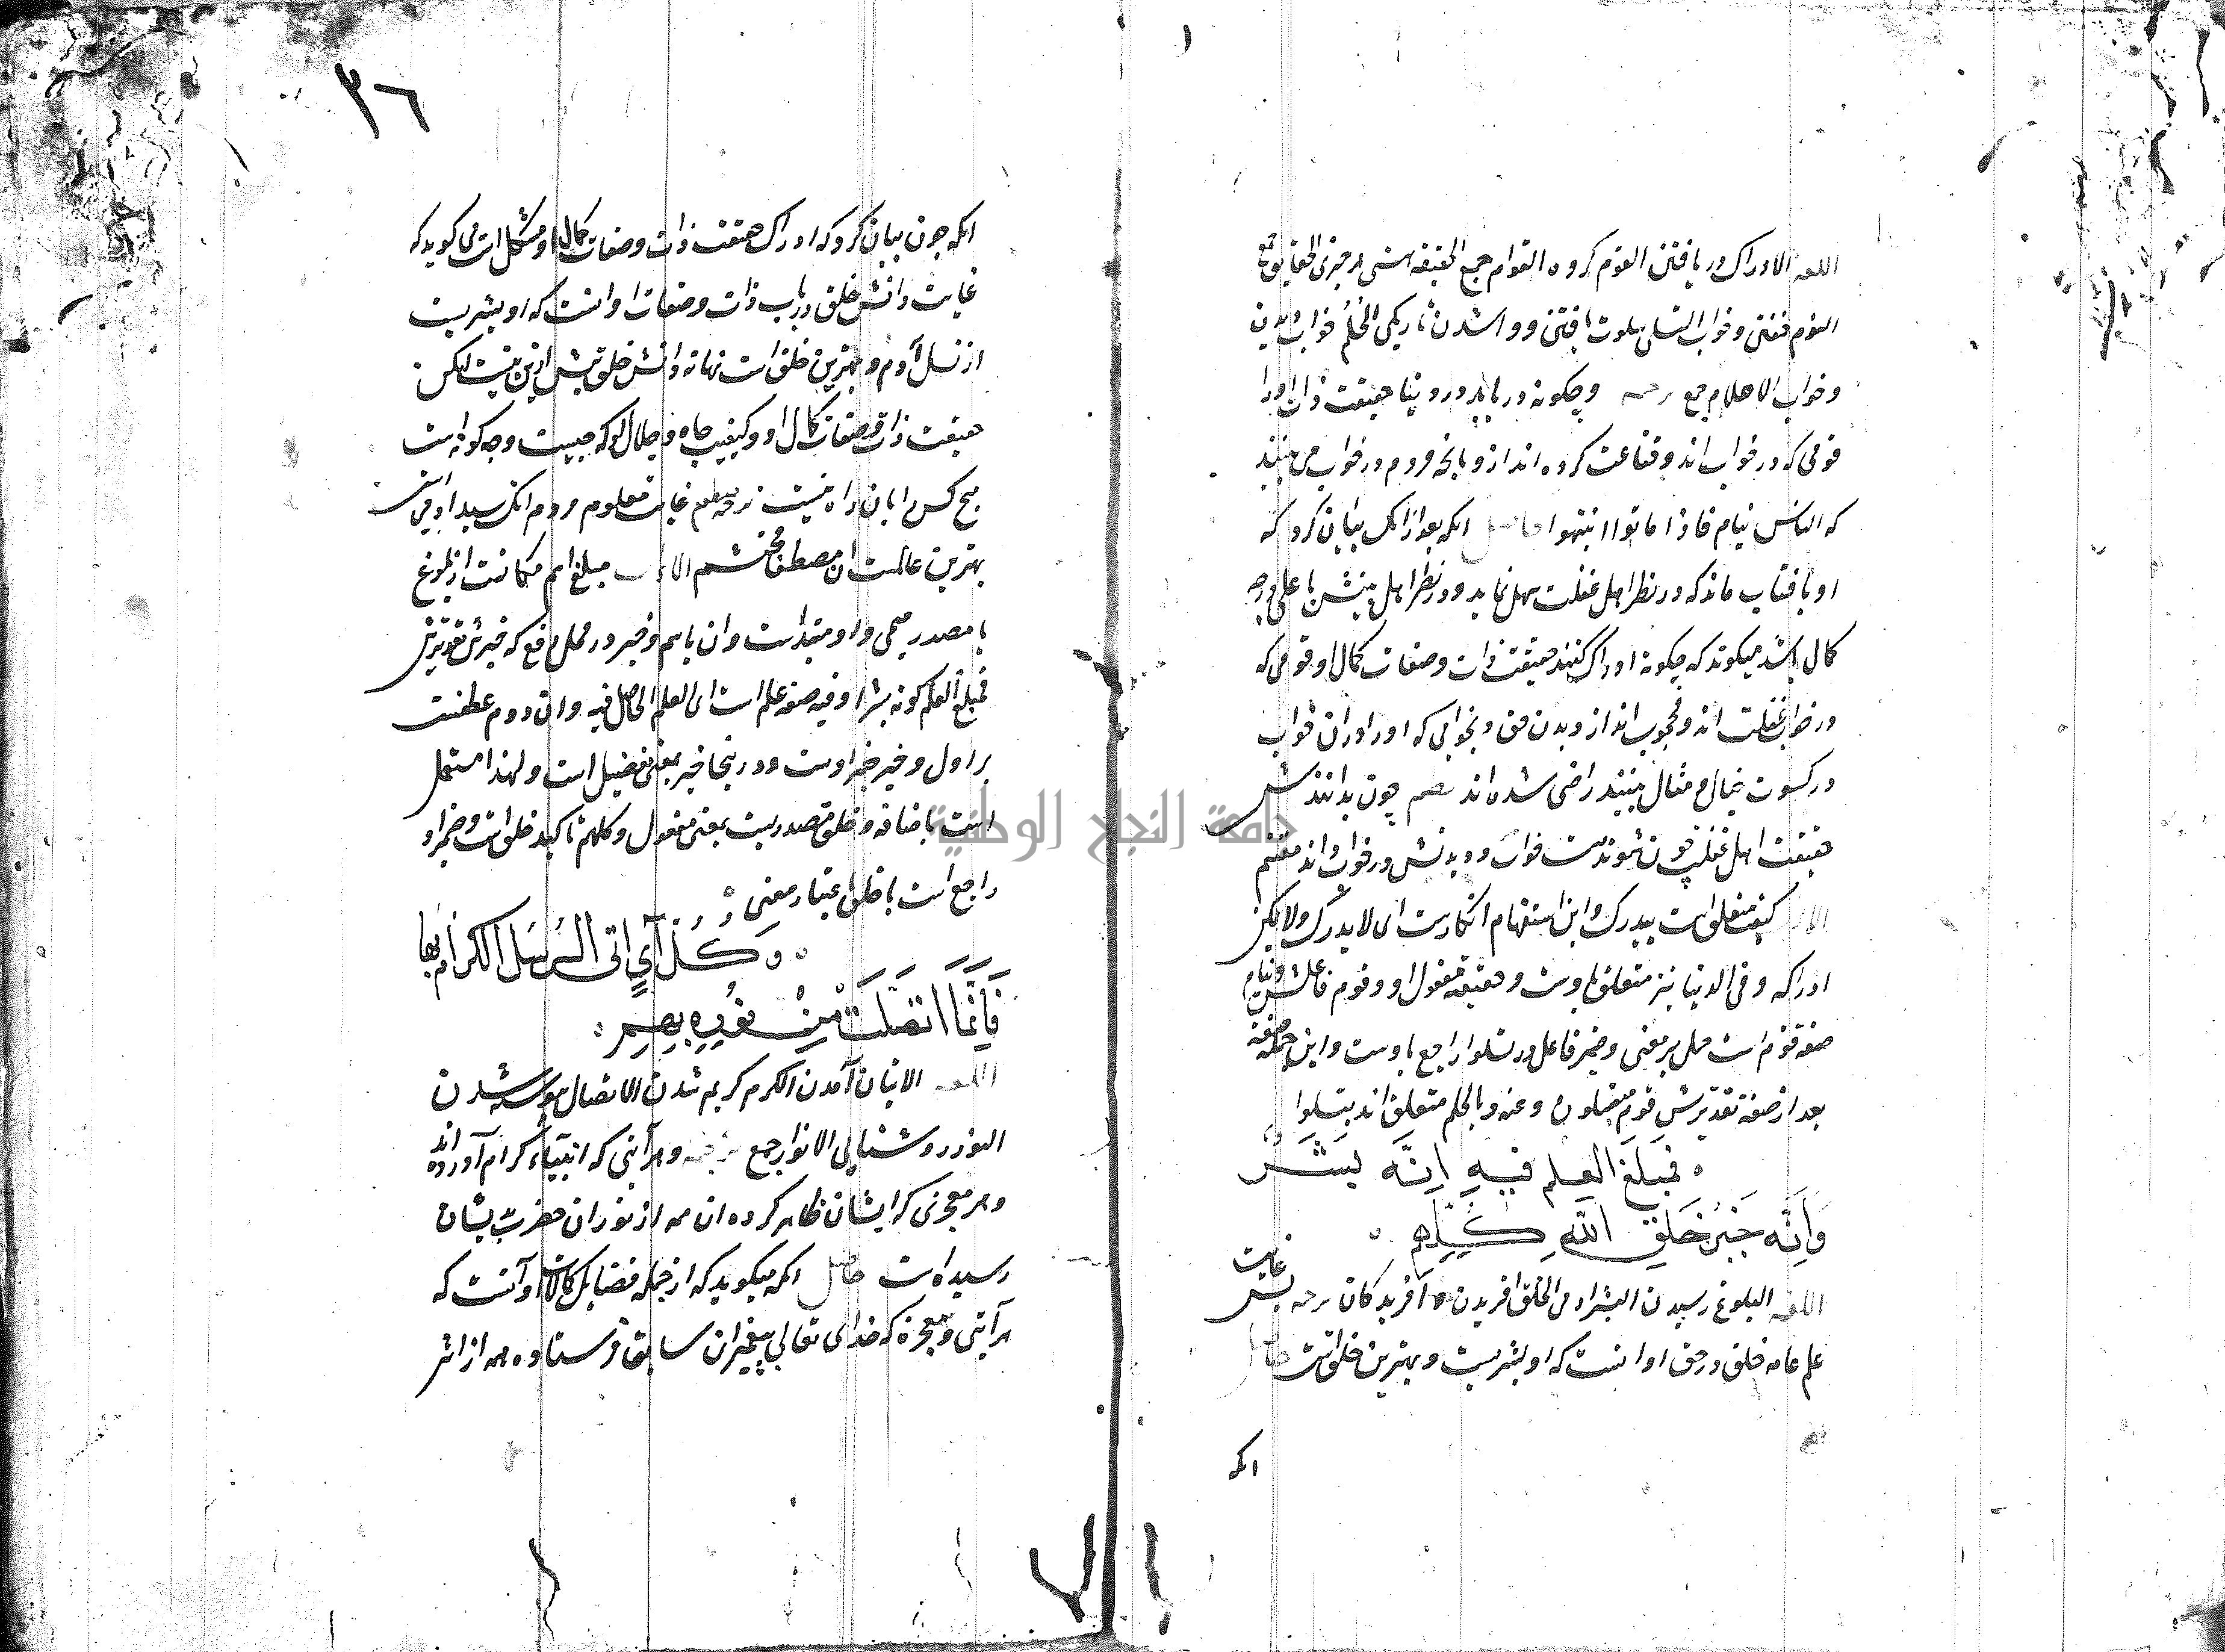 اللغه الادراک دریافتن القوم کروه القوام جمع الحقیقه هستی هر چیزی الحقایق جمع
النوم خفتن و خواب التسلی سلوت یافتن و واشدن تاریکی الحُلُم خواب دیدن
و خواب الاحلام جمع ترجمه و چکونه دریابد در دنیا حقیقت ذات او را
قومی که در خواب اند و قناعت کرده اند از و بانچه مردم در خواب می بینند
که الناس نیام فاذا ماتوا انتبهوا حاصل انکه بعد از انک بیان کرد که
او بافتاب ماند که در نظر اهل غفلت سهل نماید و در نظر اهل بینش با علی درجه
کمال باشد میکوند که چکونه ادراک کنند حقیقت ذات و صفات کمال او قومی که
در خواب غفلت اند و محجوب اند از دیدن حق و بخوابی که او را در ان خواب
در کسوت خیال و مثال بینند راضی شده اند چون بدانندش
حقیقت اهل غفلت چون نموندست خواب و دیدنش در خواب داند مغتنم
کیف متعلق است بیدرک و این استفهام انکارست ای لا یدرک ولا یمکن
ادراکه و فی الدنیا نیز متعلق باوست و حقیقته مفعول او و قوم فاعلش و نیام
صفه قوم است حمل بر معنی و ضمیر فاعل در تسلوا راجع باوست و این جمله صفة
بعد از صفه تقدیرش قوم متسلون و عنه و بالحلم متعلق اند بتسلوا
فمبلغ العلم فیه انّه بشرٌ
وَاَنّه خَیرُ خَلقِ اللّهِ کُلِّهِمِ
غایت
اللغه البلوغ رسیدن البشر ادمی الخلق افریدن و افریدکان ترجمه پس
علم عامه خلق در حق او انست که او بشریست و بهترین خلق است حاصل
انکه
٣٦
انکه چون بیان کرد که ادراک حقیقت ذات و صفات کمال او مشکل است می کوید که
غایت دانش خلق در باب ذات و صفات او انست که او بشریست
از نسل آدم و بهترین خلق است نهایة دانش خلق بیش ازین نیست لیکن
حقیقت ذات و صفات کمال او و کیفیت جاه و جلال او که چیست و چه کونه است
هیچ کس را بان راه نیست غایت معلوم مردم انک سید ادمی است
بهترین عالمست ان مصطفی محتشم الاعراب مبلغ اسم مکانست از بلوغ
یا مصدر میمی و او مبتداست و ان با سم و خبر در محل رفع که خبرش تقدیرش
فمبلغ العلم کونه بشرا و فیه صفه علم است ای العلم الحاصل فیه و ان دوم عطفست
بر اول و خیر خبر اوست و درینجا خیر بمعنی تفضیل است و لهذا مستعمل
است باضافه و خلق مصدریست بمعنی مفعول و کلهم تاکید خلق است و ضمیر او
راجع است با خلق باعتبار معنی
وَکُلُّ آیٍ اتی الرُسَلُ الکرامُ بها
فَاِنّمَا اتّصَلَتْ مِنْ نُورِهِ بِهِمِ
اللغه الاتیان آمدن الکرم کریم شدن الاتصال پیوسته شدن
النور روشنایی الانوار جمع ترجمه و هر آیتی که انبیاء کرام آورده اند
و هر معجزی که ایشان ظاهر کرده ان همه از نور ان حضرت بایشان
رسیده است حاصل انکه میکوید که از جمله فضایل کمالات او آنست که
هر آیتی و معجزه که خدای تعالی به پیغمبران سابق فرستاده همه از اثر
جامعة النجاح الوطنية